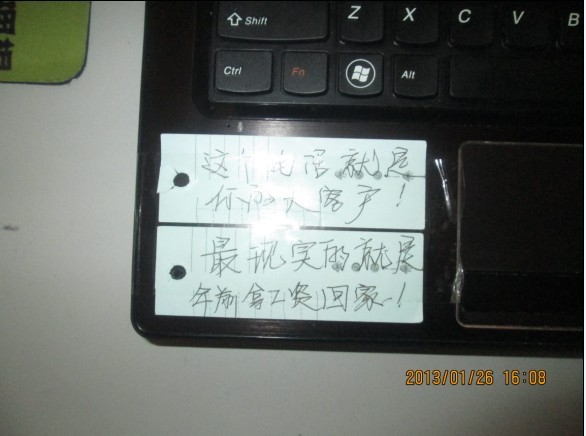 Shift
Z X C V B
Ctrl Fn Alt
这个电话就是
你的大客户!
最现实的就是
年前拿工资回家!
2013/01/26 16:08